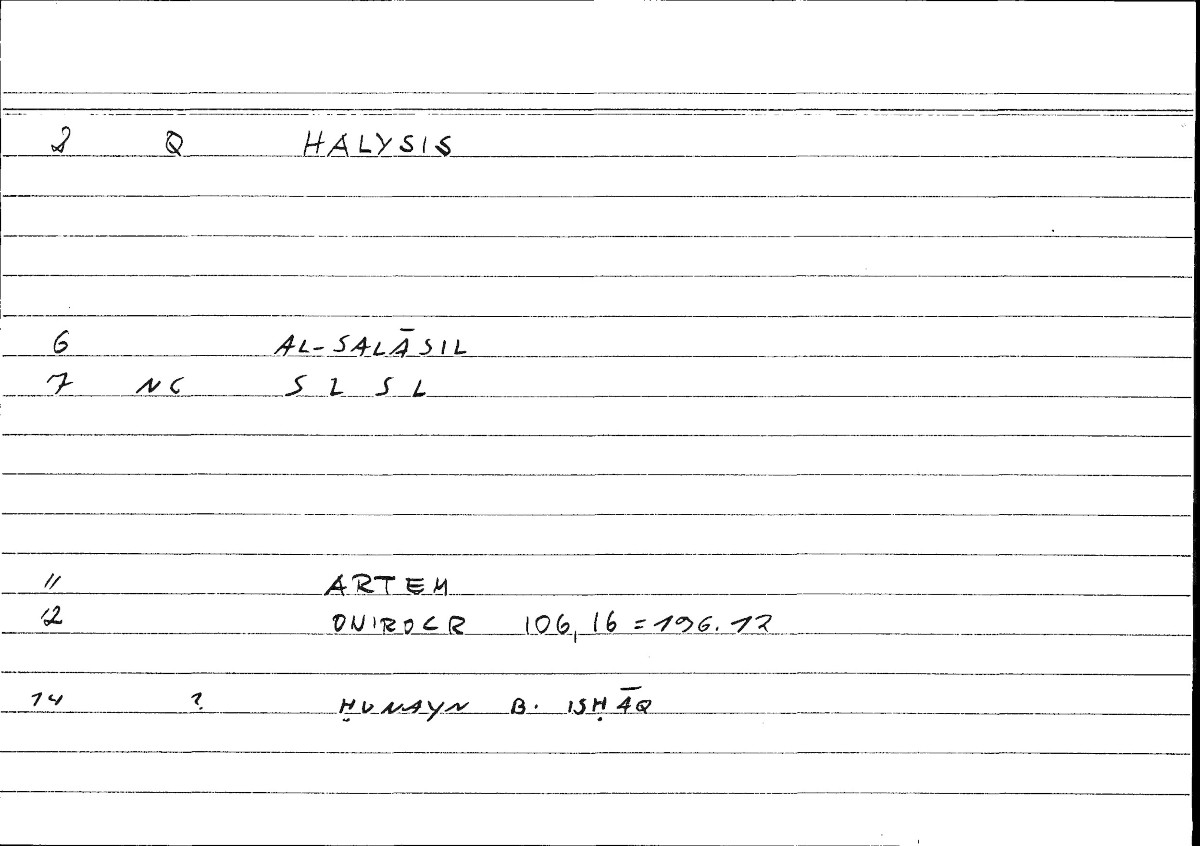 2 Q HALYSIS
6 AL-SALĀSIL
7 NC S L S L
11 ARTEM
12 ONIROCR 106,16=196.12
14 ? ḤUNAYN B. ISḤĀQ